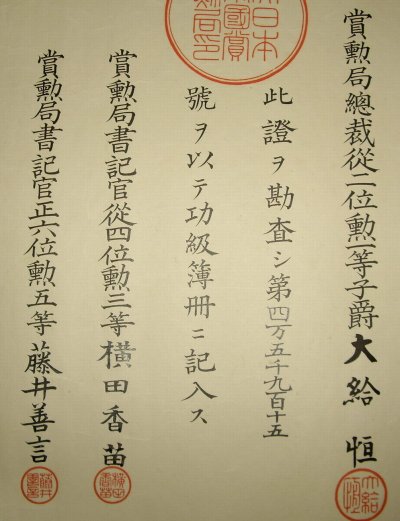 賞勲局總裁從二位勲一等子爵大給恒
此證ヲ勘査シ第四万五千九百十五
號ヲ以テ功級簿冊ニ記入ス
賞勲局書記官從四位勲三等横田香苗
賞勲局書記官正六位勲五等藤井善言